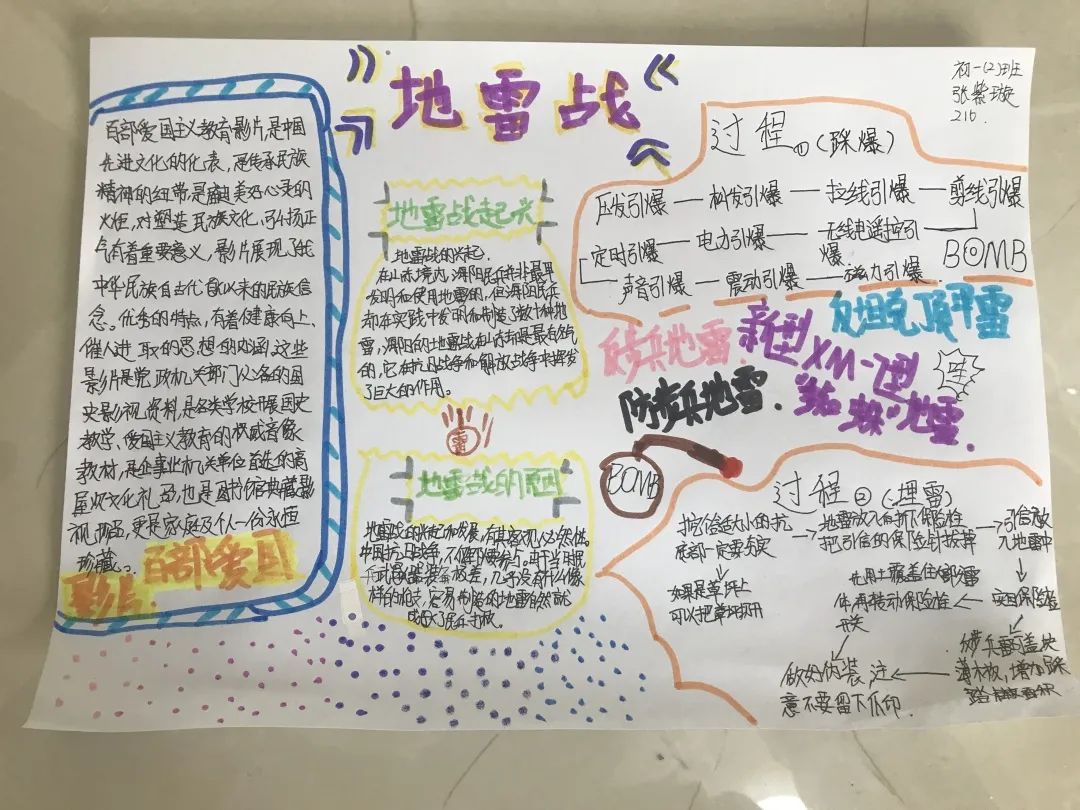 地雷战
初一(2)班
张紫璇
210.
百部爱国主义教育影片,是中国
先进文化的化表,是传承民族
精神的纽带是盛美巧心灵的
火炬,对塑造民族文化,弘扬正
气有着重要意义,影片展现了我
中华民族自古代自以来的民族信
念。优秀的特点,有着健康向上、
催人进取的思想的内涵,这些
影片是党政机关部门必备的国
史影视资料,是各类学校开展国史
教学、爱国主义教育的权威音像
教材,是企事业机关单位首选的高
层次文化礼品,也是图书馆典藏影
视,更是家庭及个人一份永恒
珍藏。
百部爱国
影片.
地雷战起
地雷战的兴起
发明和使用地雷的,但海阳民兵
却在实践中发明和制造了数十种地
雷,海阳的地雷战在
的,它在抗日战争和解放战争中挥发
了巨大的作用。
雷
地雷战的原因
地雷战的兴起和发展,有其客观人必然性。
中国抗日战争,不仅
兵武器装备极差,几乎没有什么像
样的枪支,容易制造的地雷自然就
成
过程①(踩爆)
压发引爆 — 松发引爆 — 拉线引爆 — 剪线引爆
定时引爆 — 电力引爆 — 无线电遥控引
爆
声音引爆 — 震动引爆 — 磁力引爆
BOMB
反步兵地雷.
新型XM-1型
"蜘蛛"地雷.
反坦克顶甲雷
防步兵地雷.
BOMB
过程②(埋雷)
挖合适大小的坑
底部一定要夯实
如果是草坪上
可以把草坪切开
地雷放入的拆下保险栓
把引信的保险针拆掉
引信放
入地雷中
安置保险栓
先用土覆盖住部雷
体再转动保险栓
开关
步兵雷可盖块
薄木板,增加踩
做好伪装 注
意不要留下